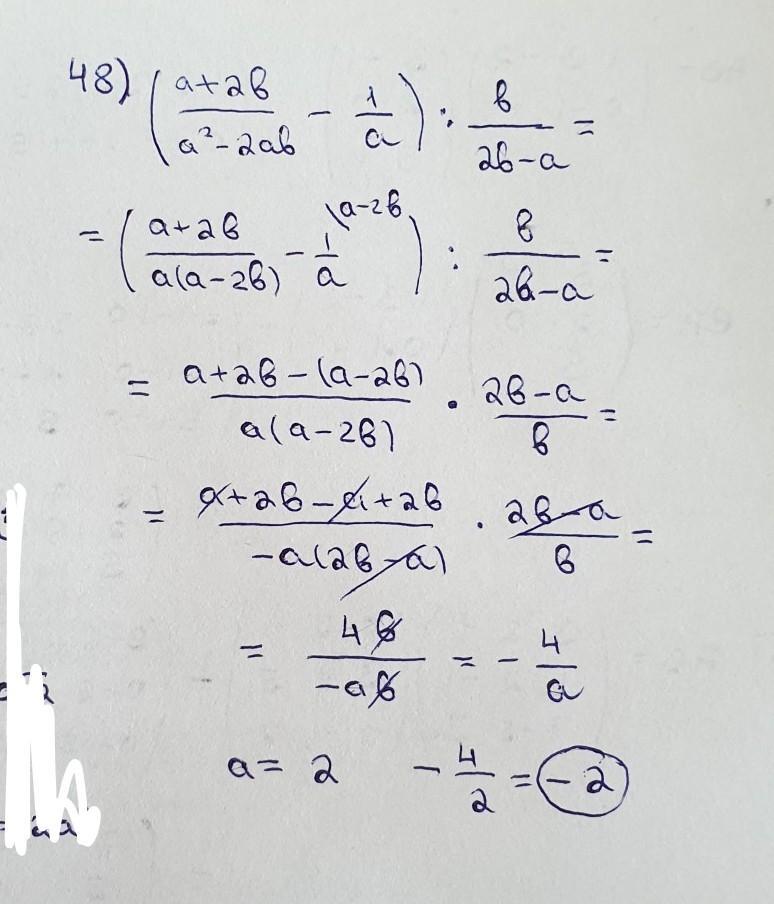 48) ((a+2b)/(a²-2ab) - 1/a) : b/(2b-a) =
= ((a+2b)/(a(a-2b)) - 1/a \a-2b) : b/(2b-a) =
= (a+2b-(a-2b))/(a(a-2b)) · (2b-a)/b =
= (a+2b-a+2b)/(-a(2b-a)) · (2b-a)/b =
= 4b/(-ab) = - 4/a
a = 2 - 4/2 = -2